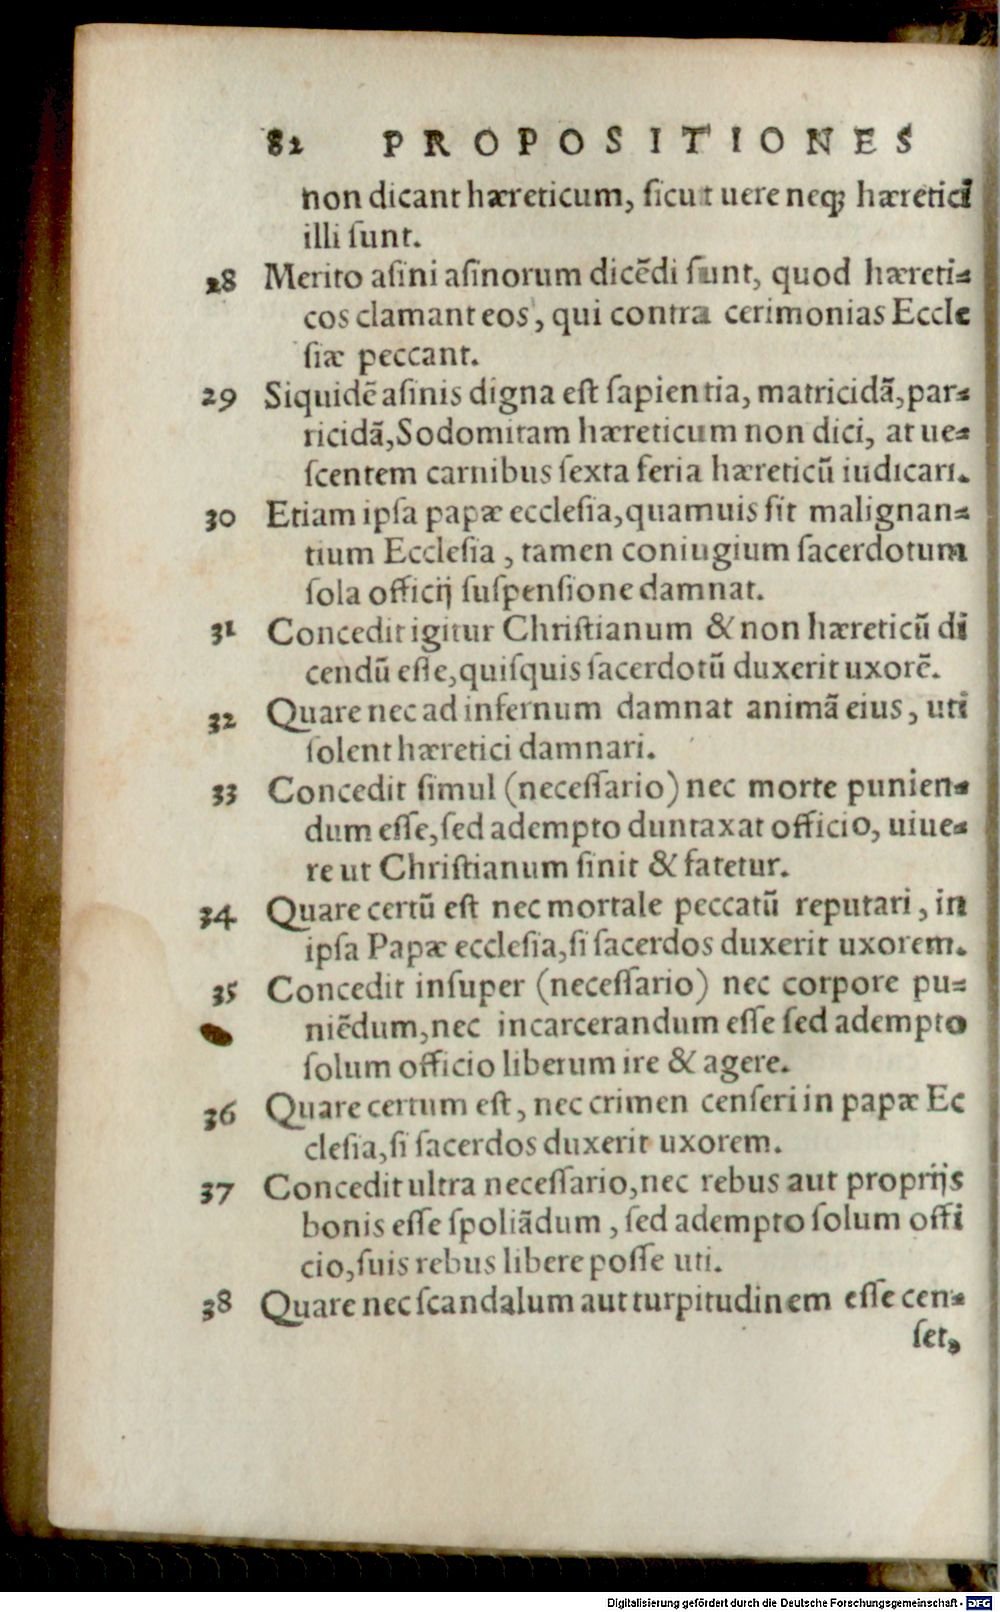 82 PROPOSITIONES
non dicant hæreticum, ſicut uere neqꝫ hæretici
illi ſunt.
28 Merito aſini aſinorum dicẽdi ſunt, quod hæreti-
cos clamant eos, qui contra cerimonias Eccle
ſiæ peccant.
29 Siquidẽ aſinis digna eſt ſapientia, matricidã, par-
ricidã, Sodomitam hæreticum non dici, at ue-
ſcentem carnibus ſexta feria hæreticũ iudicari.
30 Etiam ipſa papæ eccleſia, quamuis ſit malignan-
tium Eccleſia, tamen coniugium ſacerdotum
ſola officij ſuſpenſione damnat.
31 Concedit igitur Chriſtianum & non hæreticũ di
cendũ eſſe, quiſquis ſacerdotũ duxerit uxorẽ.
32 Quare nec ad infernum damnat animã eius, uti
ſolent hæretici damnari.
33 Concedit ſimul (neceſſario) nec morte punien-
dum eſſe, ſed adempto duntaxat officio, uiue-
re ut Chriſtianum ſinit & fatetur.
34 Quare certũ eſt nec mortale peccatũ reputari, in
ipſa Papæ eccleſia, ſi ſacerdos duxerit uxorem.
35 Concedit inſuper (neceſſario) nec corpore pu-
niẽdum, nec incarcerandum eſſe ſed adempto
ſolum officio liberum ire & agere.
36 Quare certum eſt, nec crimen cenſeri in papæ Ec
cleſia, ſi ſacerdos duxerit uxorem.
37 Concedit ultra neceſſario, nec rebus aut proprijs
bonis eſſe ſpoliãdum, ſed adempto ſolum offi
cio, ſuis rebus libere poſſe uti.
38 Quare nec ſcandalum aut turpitudinem eſſe cen-
ſet,
Digitalisierung gefördert durch die Deutsche Forschungsgemeinschaft - DFG